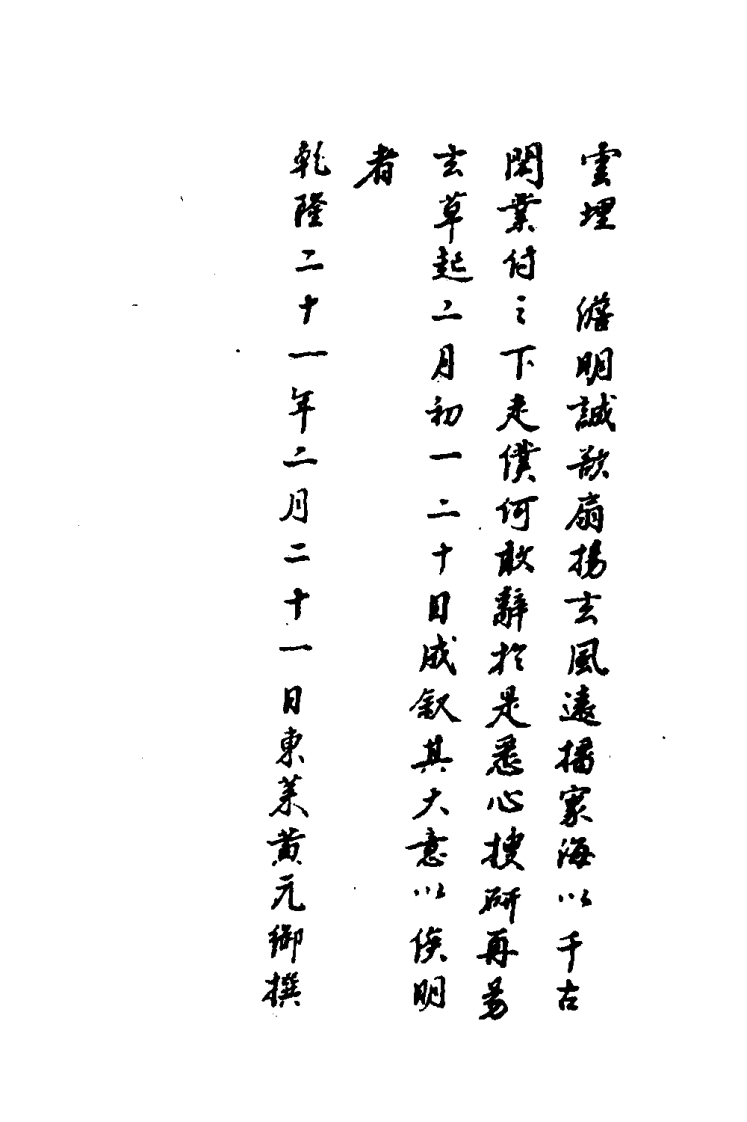 雲埋　澹明誠欲扇揚玄風遠播寰海以千古
閑業付之下走僕何敢辭於是悉心搜研再易
玄草起二月初一二十日成敘其大意以俟明
者
乾隆二十一年二月二十一日東萊黃元御撰